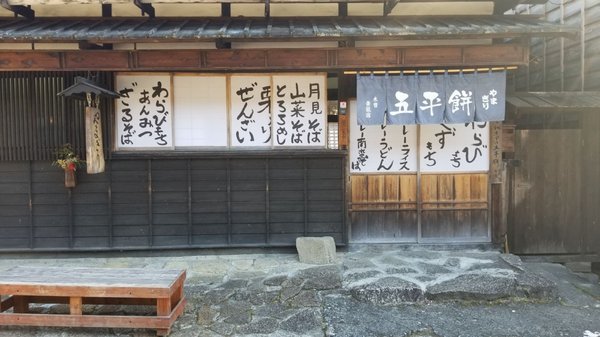 やまぎり
五平餅
月見そば
山菜そば
とろろめし
ぜんざい
わらびもち
あんみつ
ざるそば
わらび
ずもち
レーライス
レーうどん
レー南蛮そば